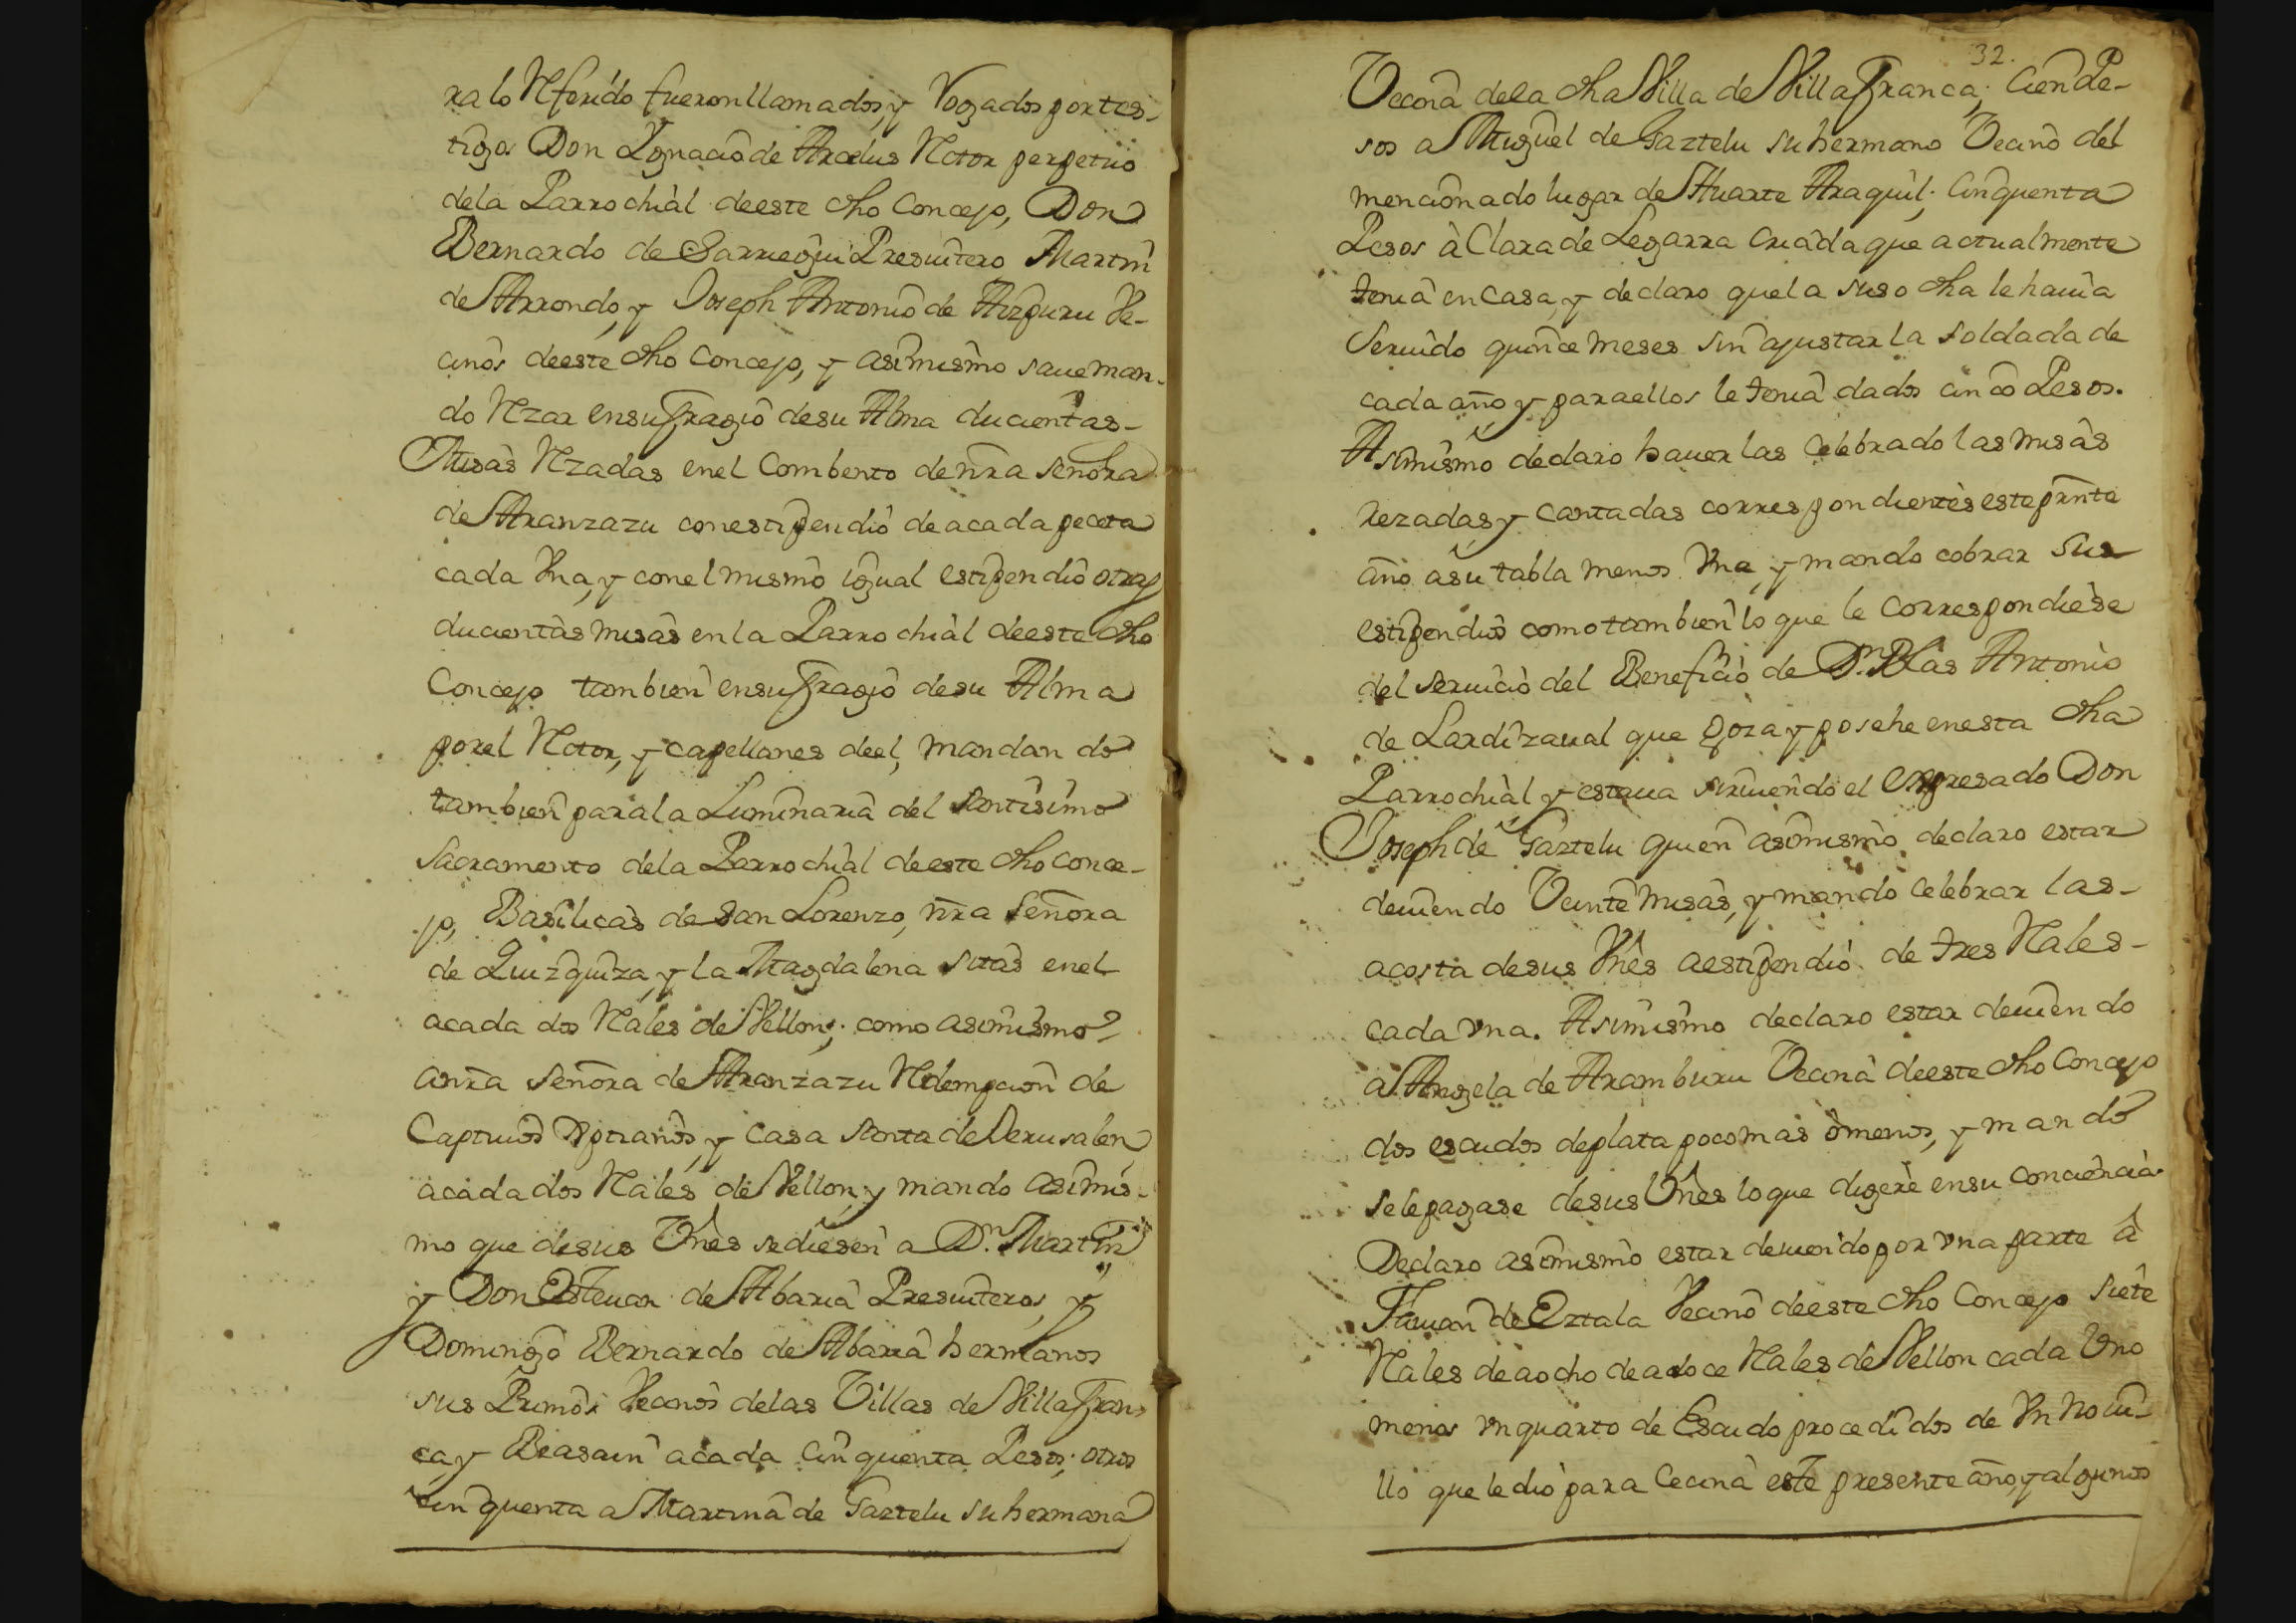 ra lo Rferido fueron llamados, y Rogados por tes-
tigos Don Ignacio de Aracelus Rctor perpetuo
dela Parrochial de este dho Concejo, Don
Bernardo de Sarriegui Presuitero Martin
de Arrondo, y Joseph Antonio de Aizpuru Ve-
cinos deeste dho Concejo, y asimismo saue man-
do Rzar en sufragio desu Alma ducientas-
Misas Rzadas enel Combento de nra señora
de Aranzazu con estipendio de acada peceta
cada Vna, y con el mismo igual estipendio otras
ducientas misas en la Parrochial deeste dho
Concejo tambien en sufragio desu Alma
por el Rctor, y capellanes deel, mandando
tambien para la Luminaria del Santisimo
Sacramento dela Parrochial deeste dho conce-
jo, Basilicas de San Lorenzo, nra señora
de Quizquiza, y la Magdalena sitas enel
acada dos Rales de Vellon; como asimismo
a nra señora de Aranzazu Rdempcion de
Captiuos Xptianos, y Casa Santa de Jerusalen
acada dos Rales de Vellon, y mando asimis-
mo que desus Vnes se diesen a Dn. Martin
y Don Esteuan de Abaria Presuiteros, y
Domingo Bernardo de Abaria hermanos
sus Primos Vecinos delas Villas de Villafran-
ca, y Beasain acada cinquenta Pesos; otros
cinquenta a Martina de Gaztelu su hermana
32.
Vecina dela dha Villa de Villafranca; Cien Pe-
sos a Miguel de Gaztelu su hermano Vecino del
mencionado lugar de Huarte Araquil; Cinquenta
Pesos à Clara de Legarra Criada que actualmente
tenia en Casa, y declaro que la suso dha le hauia
Seruido quince meses sin ajustar la soldada de
cada año, y para ellos le tenia dados cinco Pesos.
Asimismo declaro hauer las Celebrado las misas
Rezadas, y Cantadas correspondientes este prnte
año asu tabla menos Vna, y mando cobrar sus
estipendios como tambien lo que le Correspondiese
del seruicio del Beneficio de Dn. Blas Antonio
de Lardizaual que goza y posehe en esta dha
Parrochial y estaua siruiendo el expresado Don
Joseph de Gaztelu quien asimismo declaro estar
deuiendo Veinte misas, y mando Celebrar las-
acosta desus Vnes aestipendio de tres Rales-
cada vna. Asimismo declaro estar deuiendo
a Angela de Aramburu Vecina deeste dho Concejo
dos escudos de plata poco mas ò menos, y mando
sele pagase desus Vnes lo que digere en su conciencia
Declaro asimismo estar deuiendo por vna parte à
Juan de Eztala Vecino deeste dho Concejo siete
Rales de aocho de adoce Rales de Vellon cada Vno
menos vn quarto de Escudo procedidos de Vn Noui-
llo que le dio para Cecina este presente año, y algunos